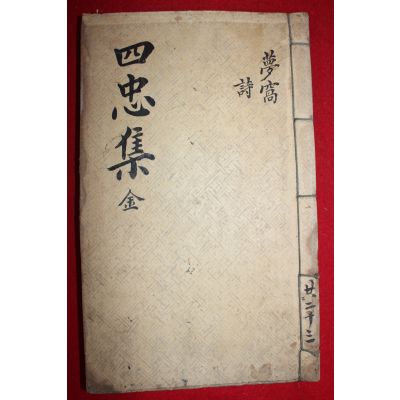 四忠集 金
夢窩
詩
共二十三